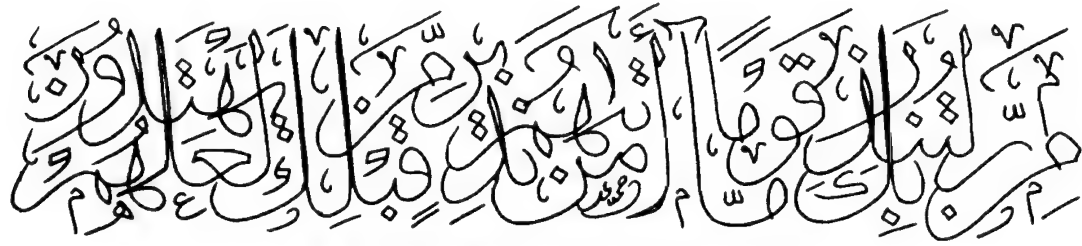 من ربك لتنذر قوما ما أتاهم من نذير من قبلك لعلهم يهتدون